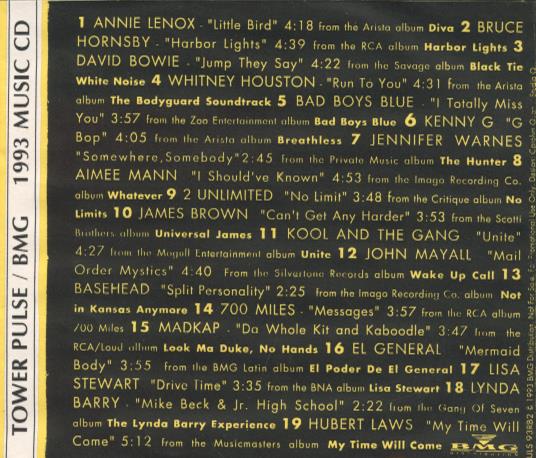 TOWER PULSE / BMG 1993 MUSIC CD
1 ANNIE LENOX - "Little Bird" 4:18 from the Arista album Diva 2 BRUCE
HORNSBY - "Harbor Lights" 4:39 from the RCA album Harbor Lights 3
DAVID BOWIE - "Jump They Say" 4:22 from the Savage album Black Tie
White Noise 4 WHITNEY HOUSTON - "Run To You" 4:31 from the Arista
album The Bodyguard Soundtrack 5 BAD BOYS BLUE - "I Totally Miss
You" 3:57 from the Zoo Entertainment album Bad Boys Blue 6 KENNY G "G
Bop" 4:05 from the Arista album Breathless 7 JENNIFER WARNES
"Somewhere, Somebody" 2:45 from the Private Music album The Hunter 8
AIMEE MANN "I Should've Known" 4:53 from the Imago Recording Co.
album Whatever 9 2 UNLIMITED "No Limit" 3:48 from the Critique album No
Limits 10 JAMES BROWN "Can't Get Any Harder" 3:53 from the Scotti
Brothers album Universal James 11 KOOL AND THE GANG "Unite"
4:27 from the Mogull Entertainment album Unite 12 JOHN MAYALL "Mail
Order Mystics" 4:40 From the Silvertone Records album Wake Up Call 13
BASEHEAD "Split Personality" 2:25 from the Imago Recording Co. album Not
in Kansas Anymore 14 700 MILES - "Messages" 3:57 from the RCA album
700 Miles 15 MADKAP - "Da Whole Kit and Kaboodle" 3:47 from the
RCA/Loud album Look Ma Duke, No Hands 16 EL GENERAL "Mermaid
Body" 3:55 from the BMG Latin album El Poder De El General 17 LISA
STEWART "Drive Time" 3:35 from the BNA album Lisa Stewart 18 LYNDA
BARRY - "Mike Beck & Jr. High School" 2:22 from the Gang Of Seven
album The Lynda Barry Experience 19 HUBERT LAWS "My Time Will
Come" 5:12 from the Musicmasters album My Time Will Come
BMG
DISTRIBUTION
1993 BMG Distribution. Not For Sale. For Promotional Use Only.